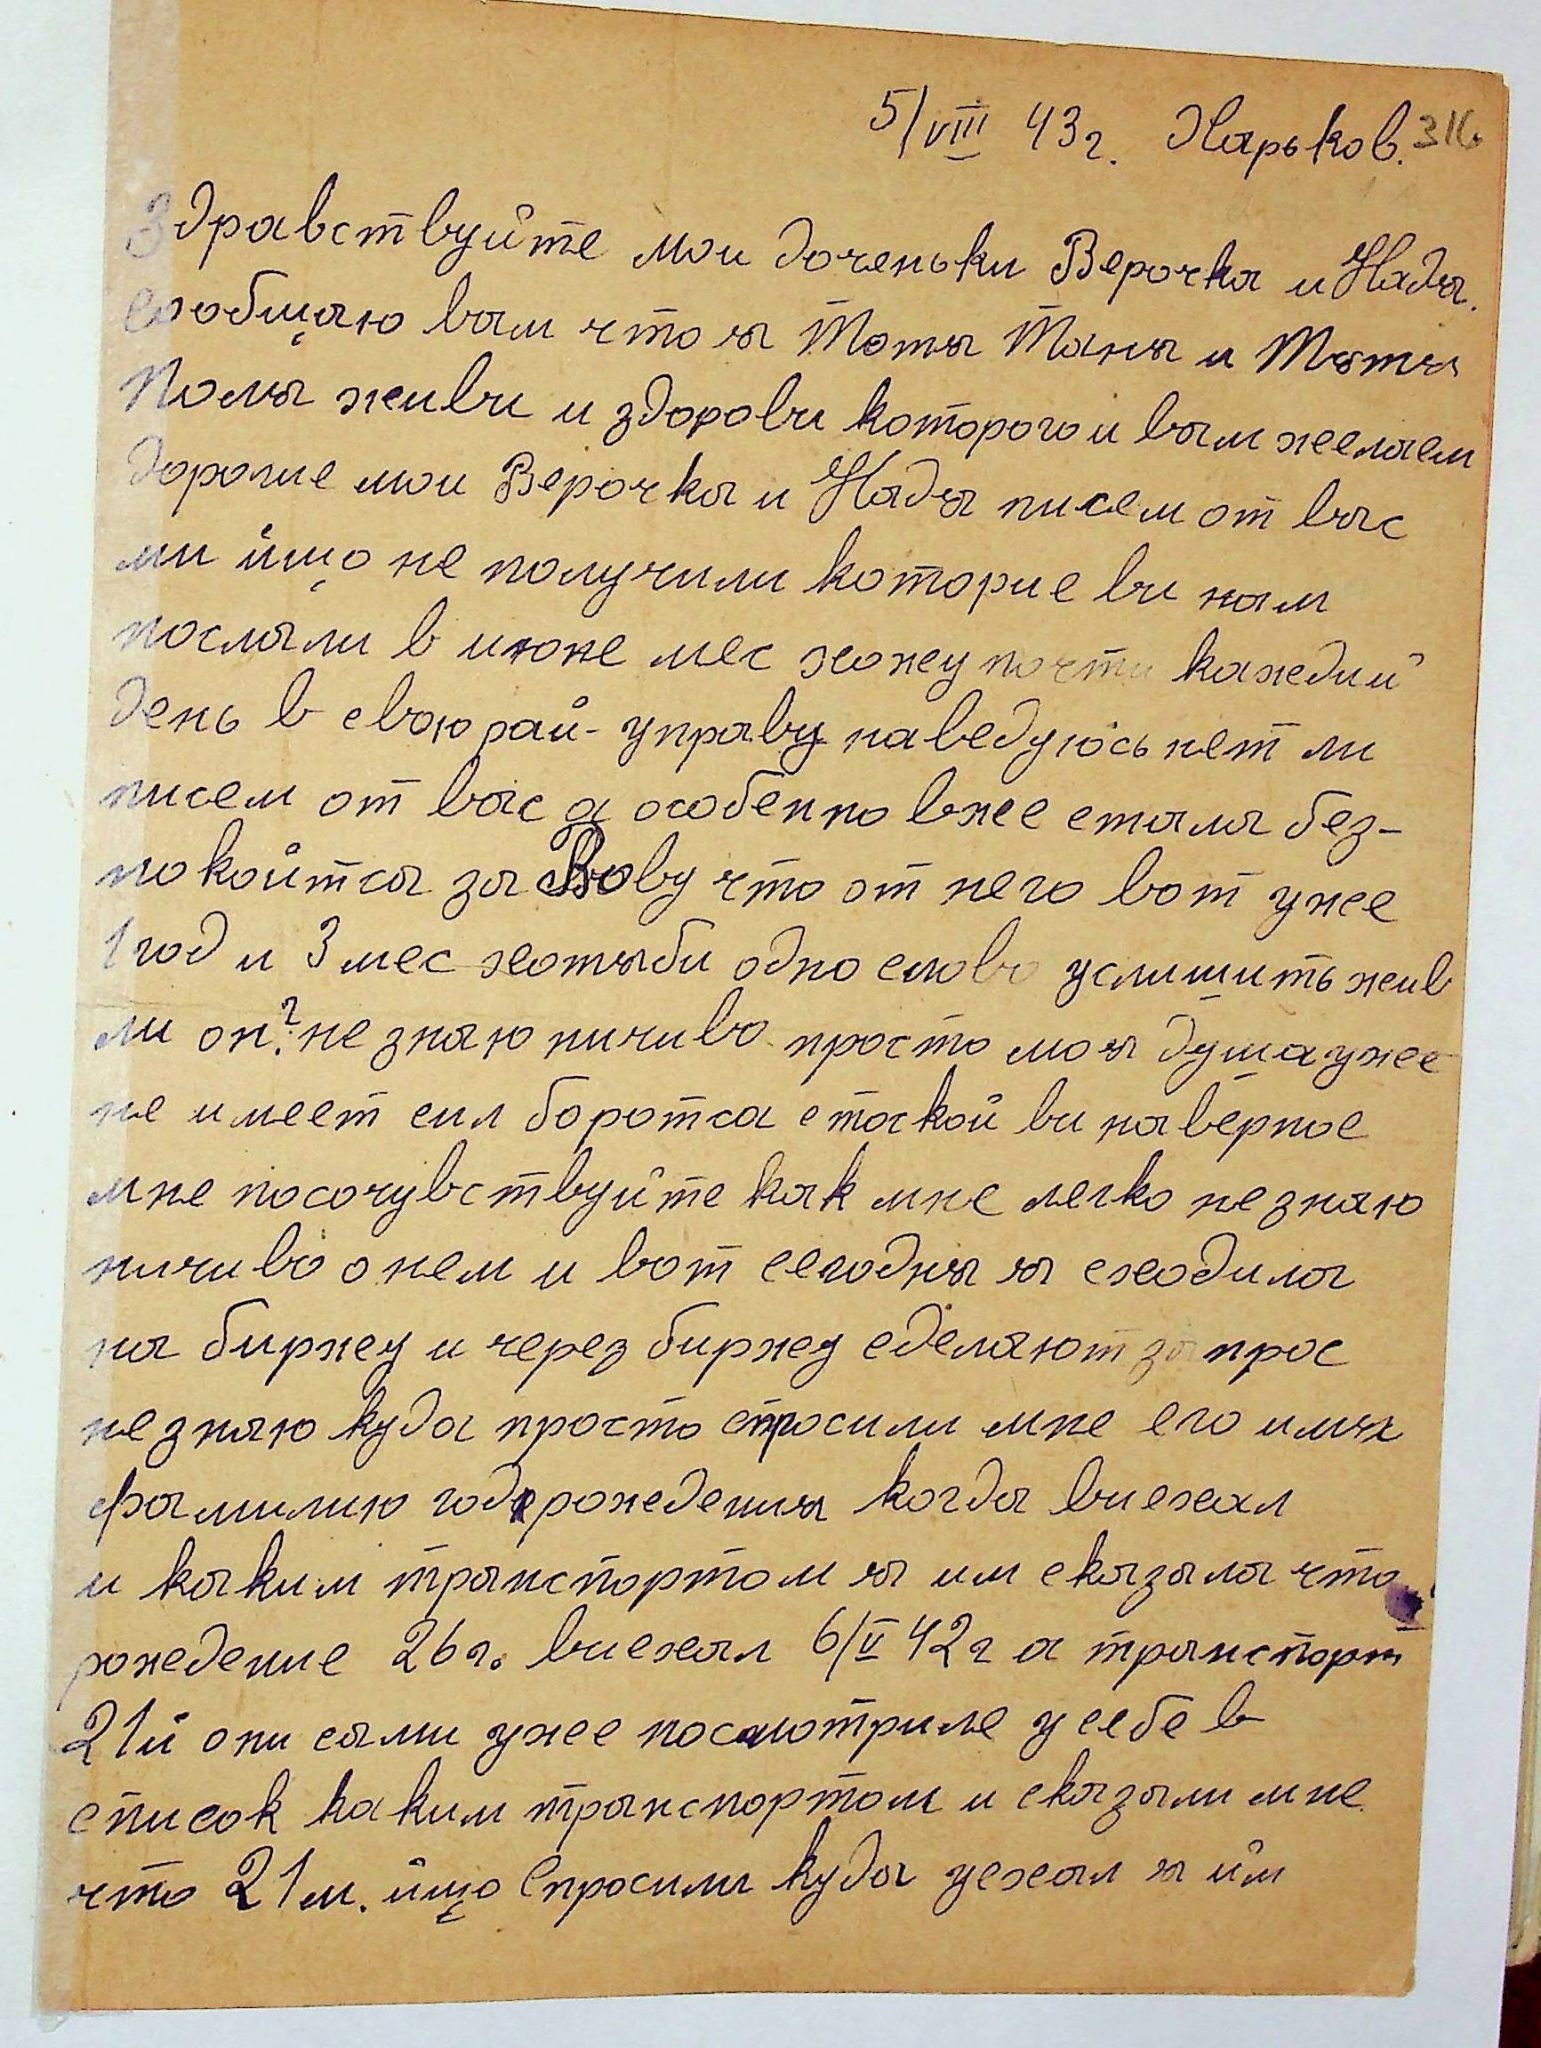 5/VIII 43 г. Харьков. 316
Здравствуйте мои доченьки Верочка и Надя.
сообщаю вам что я Тотя Таня и Тютя
Поля живи и здорови которого и вам желаем
дорогие мои Верочка и Надя писем от вас
ми йщо не получили которие ви нам
послали в июне мес хожу почти каждий
день в свою рай-управу наведуюсь нет ли
писем от вас я особенно вже стала без-
покойтса за Вову что от него вот уже
1 год и 3 мес хотяби одно слово услишить жив
ли он? не знаю ничиво просто моя душа уже
не имеет сил боротса с таской ви наверное
мне посочувствуйте как мне легко не знаю
ничиво о нем и вот сегодня я сходила
на биржу и через биржу сделают запрос
не знаю куда просто спросили мне его имя
фамилию год рождения когда виехал
и каким транспортом я им сказала что
рождение 26 г. виехал 6/V 42 г а транспорт
21й они сами уже посмотриле у себе в
список каким транспортом и сказали мне
что 21м. йщо спросили куда уехал я йм